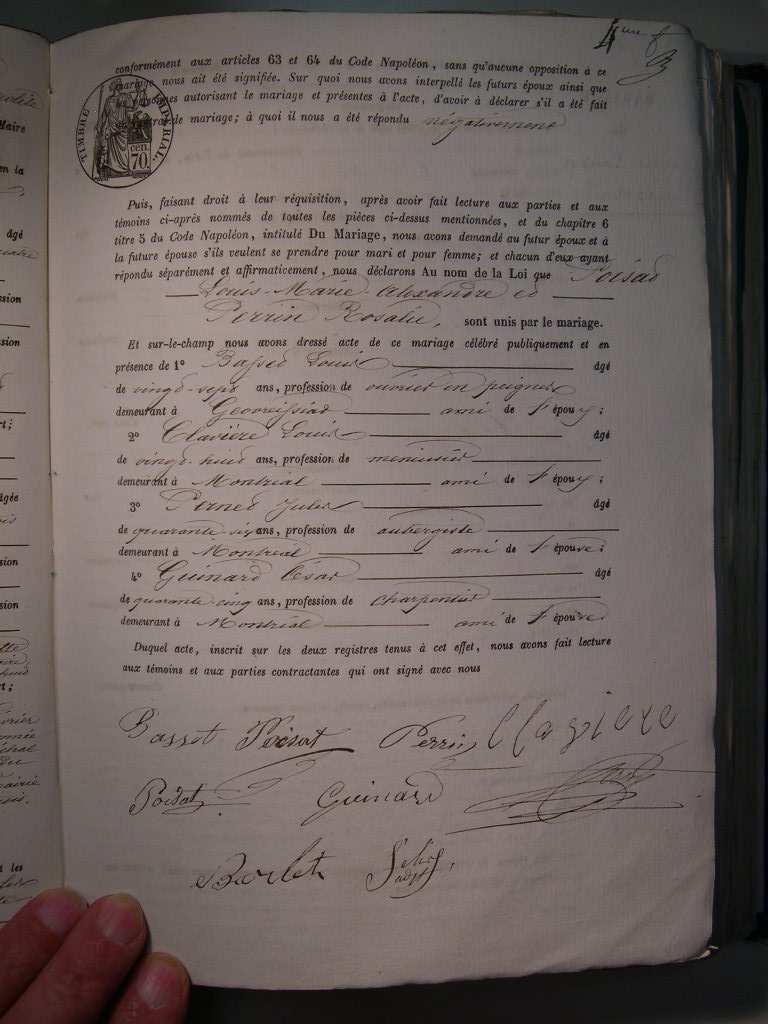 conformément aux articles 63 et 64 du Code Napoléon, sans qu'aucune opposition à ce
mariage nous ait été signifiée. Sur quoi nous avons interpellé les futurs époux ainsi que
les personnes autorisant le mariage et présentes à l'acte, d'avoir à déclarer s'il a été fait
de mariage; à quoi il nous a été répondu négativement
TIMBRE IMPÉRIAL
cen. 70.
Puis, faisant droit à leur réquisition, après avoir fait lecture aux parties et aux
témoins ci-après nommés de toutes les pièces ci-dessus mentionnées, et du chapitre 6
titre 5 du Code Napoléon, intitulé Du Mariage, nous avons demandé au futur époux et à
la future épouse s'ils veulent se prendre pour mari et pour femme; et chacun d'eux ayant
répondu séparément et affirmativement, nous déclarons Au nom de la Loi que Poisat
Louis-Marie-Alexandre et
Perrin Rosalie, sont unis par le mariage.
Et sur-le-champ nous avons dressé acte de ce mariage célébré publiquement et en
présence de 1° Basset Louis âgé
de vingt-sept ans, profession de ouvrier en peignes
demeurant à Geovreissiat ami de l'époux;
2° Clavière Louis âgé
de vingt-huit ans, profession de menuisier
demeurant à Montréal ami de l'époux;
3° Pernet Jules âgé
de quarante-six ans, profession de aubergiste
demeurant à Montréal ami de l'épouse;
4° Guinard César âgé
de quarante-cinq ans, profession de charpentier
demeurant à Montréal ami de l'épouse;
Duquel acte, inscrit sur les deux registres tenus à cet effet, nous avons fait lecture
aux témoins et aux parties contractantes qui ont signé avec nous
Basset Poisat Perrin Claviere
Poisat Guinard
Borlet